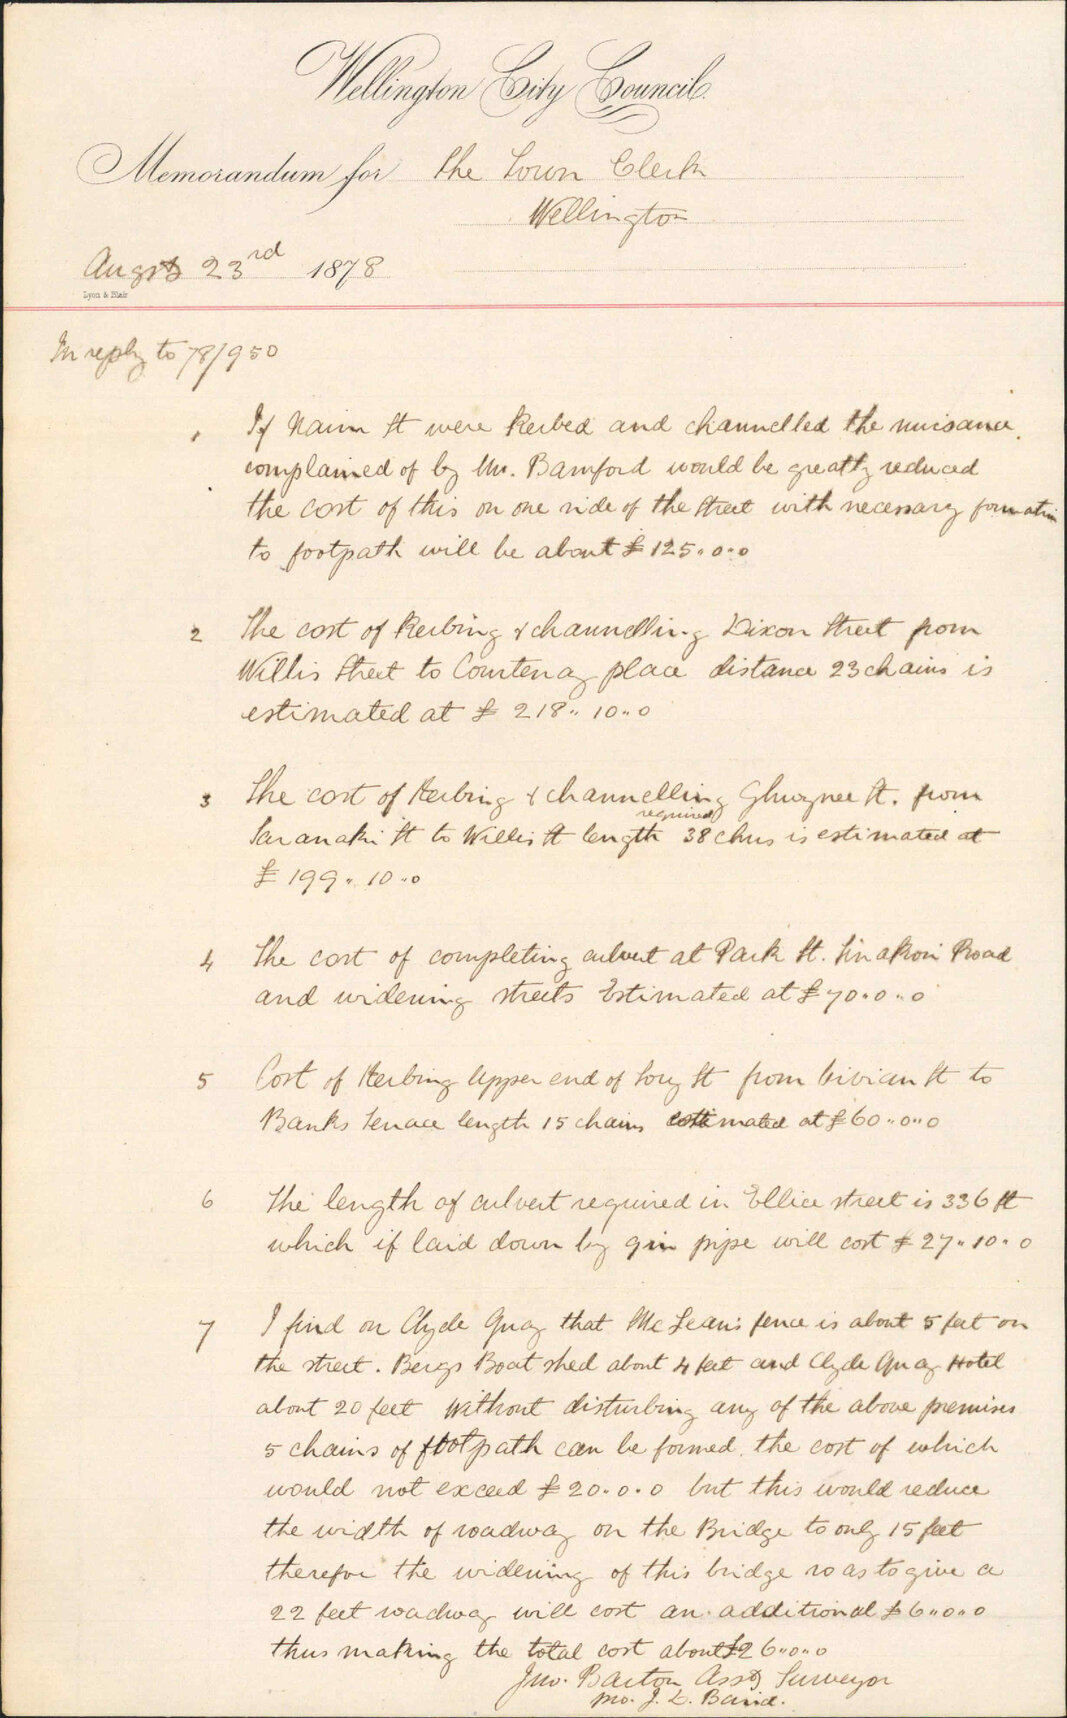 Wellington City Council.
Memorandum for The Town Clerk
Wellington
Augst 23rd 1878
Lyon & Blair
In reply to 78/950
1 If Nairn St were Kerbed and channelled the nuisance
complained of by Mr. Bamford would be greatly reduced
the cost of this on one side of the Street with necessary formation
to footpath will be about £125..0..0
2 The cost of Kerbing & channelling Dixon Street from
Willis Street to Courtenay place distance 23 chains is
estimated at £ 218.. 10..0
3 The cost of Kerbing & channelling Ghuznee St. from
required
Taranaki St to Willis St length 38 chns is estimated at
£ 199.. 10..0
4 The cost of completing culvert at Park St. Tinakori Road
and widening streets Estimated at £70..0..0
5 Cost of Kerbing Upper end of Tory St from Vivian St to
Banks Terrace length 15 chains estimated at £60..0..0
6 The length of culvert required in Ellice street is 336 ft
which if laid down by 9in pipe will cost £27..10..0
7 I find on Clyde Quay that McLean's fence is about 5 feet on
the street. Bergs Boat shed about 4 feet and Clyde Quay Hotel
about 20 feet Without disturbing any of the above premises
5 chains of footpath can be formed the cost of which
would not exceed £20..0..0 but this would reduce
the width of roadway on the Bridge to only 15 feet
therefor the widening of this bridge so as to give a
22 feet roadway will cost an additional £6..0..0
thus making the total cost about £26..0..0
Jno. Barton Asst Surveyor
J. D. Baird.